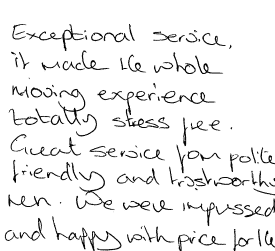 Exceptional service,
it made the whole
moving experience
totally stress free.
Great service from polite
friendly and trustworthy
men. We were impressed
and happy with price for